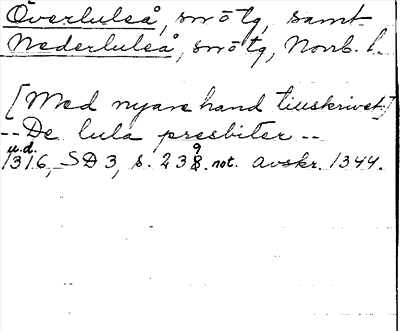 Överluleå, sn ō tg, samt
Nederluleå, sn ō tg, Norrb. l.
[Med nyare hand tillskrivet:]
-- De lula presbiter --
u.d.
1316, SD 3, s. 239 not. Avskr. 1344.